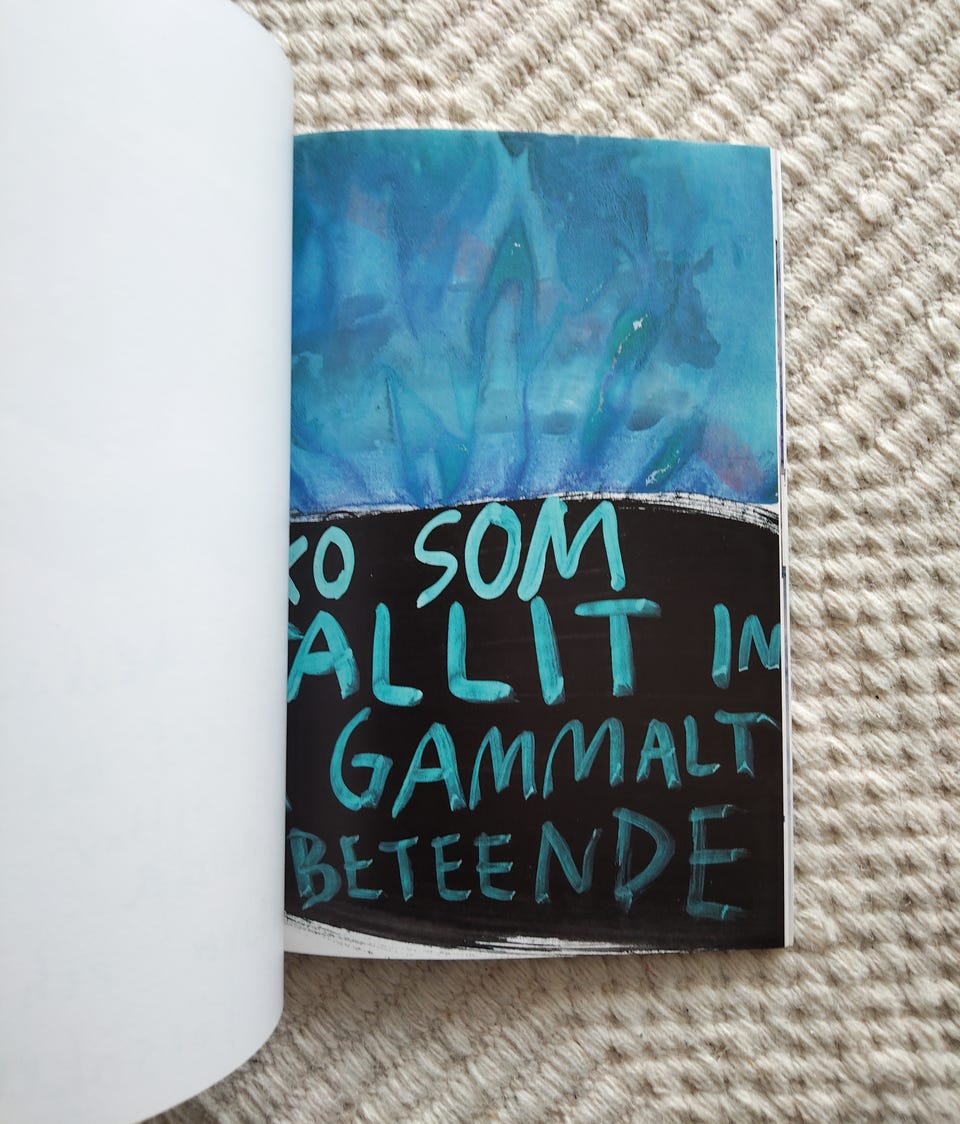 KO SOM
ALLIT IN
GAMMALT
BETEENDE